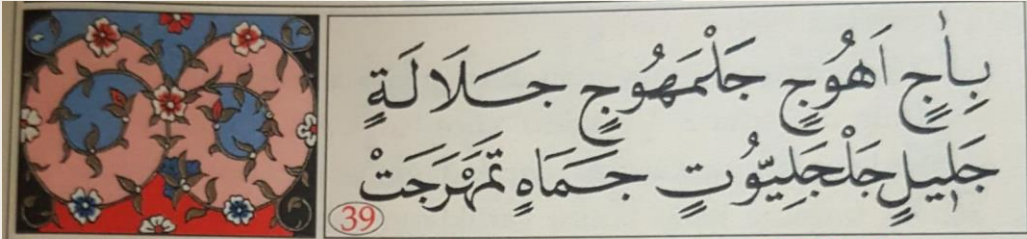 بِاٰجٍ اَهُوجٍ جَلْمَهُوجٍ جَلَالَةٍ
جَلِيلٍ جَلْجَلِيّوُتٍ جَمَاهٍ تَمَهْرَجَتْ
39